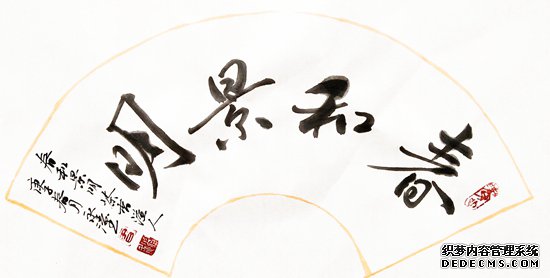 春和景明
春和景明 道人
庚子春月
织梦内容管理系统
DEDECMS.COM